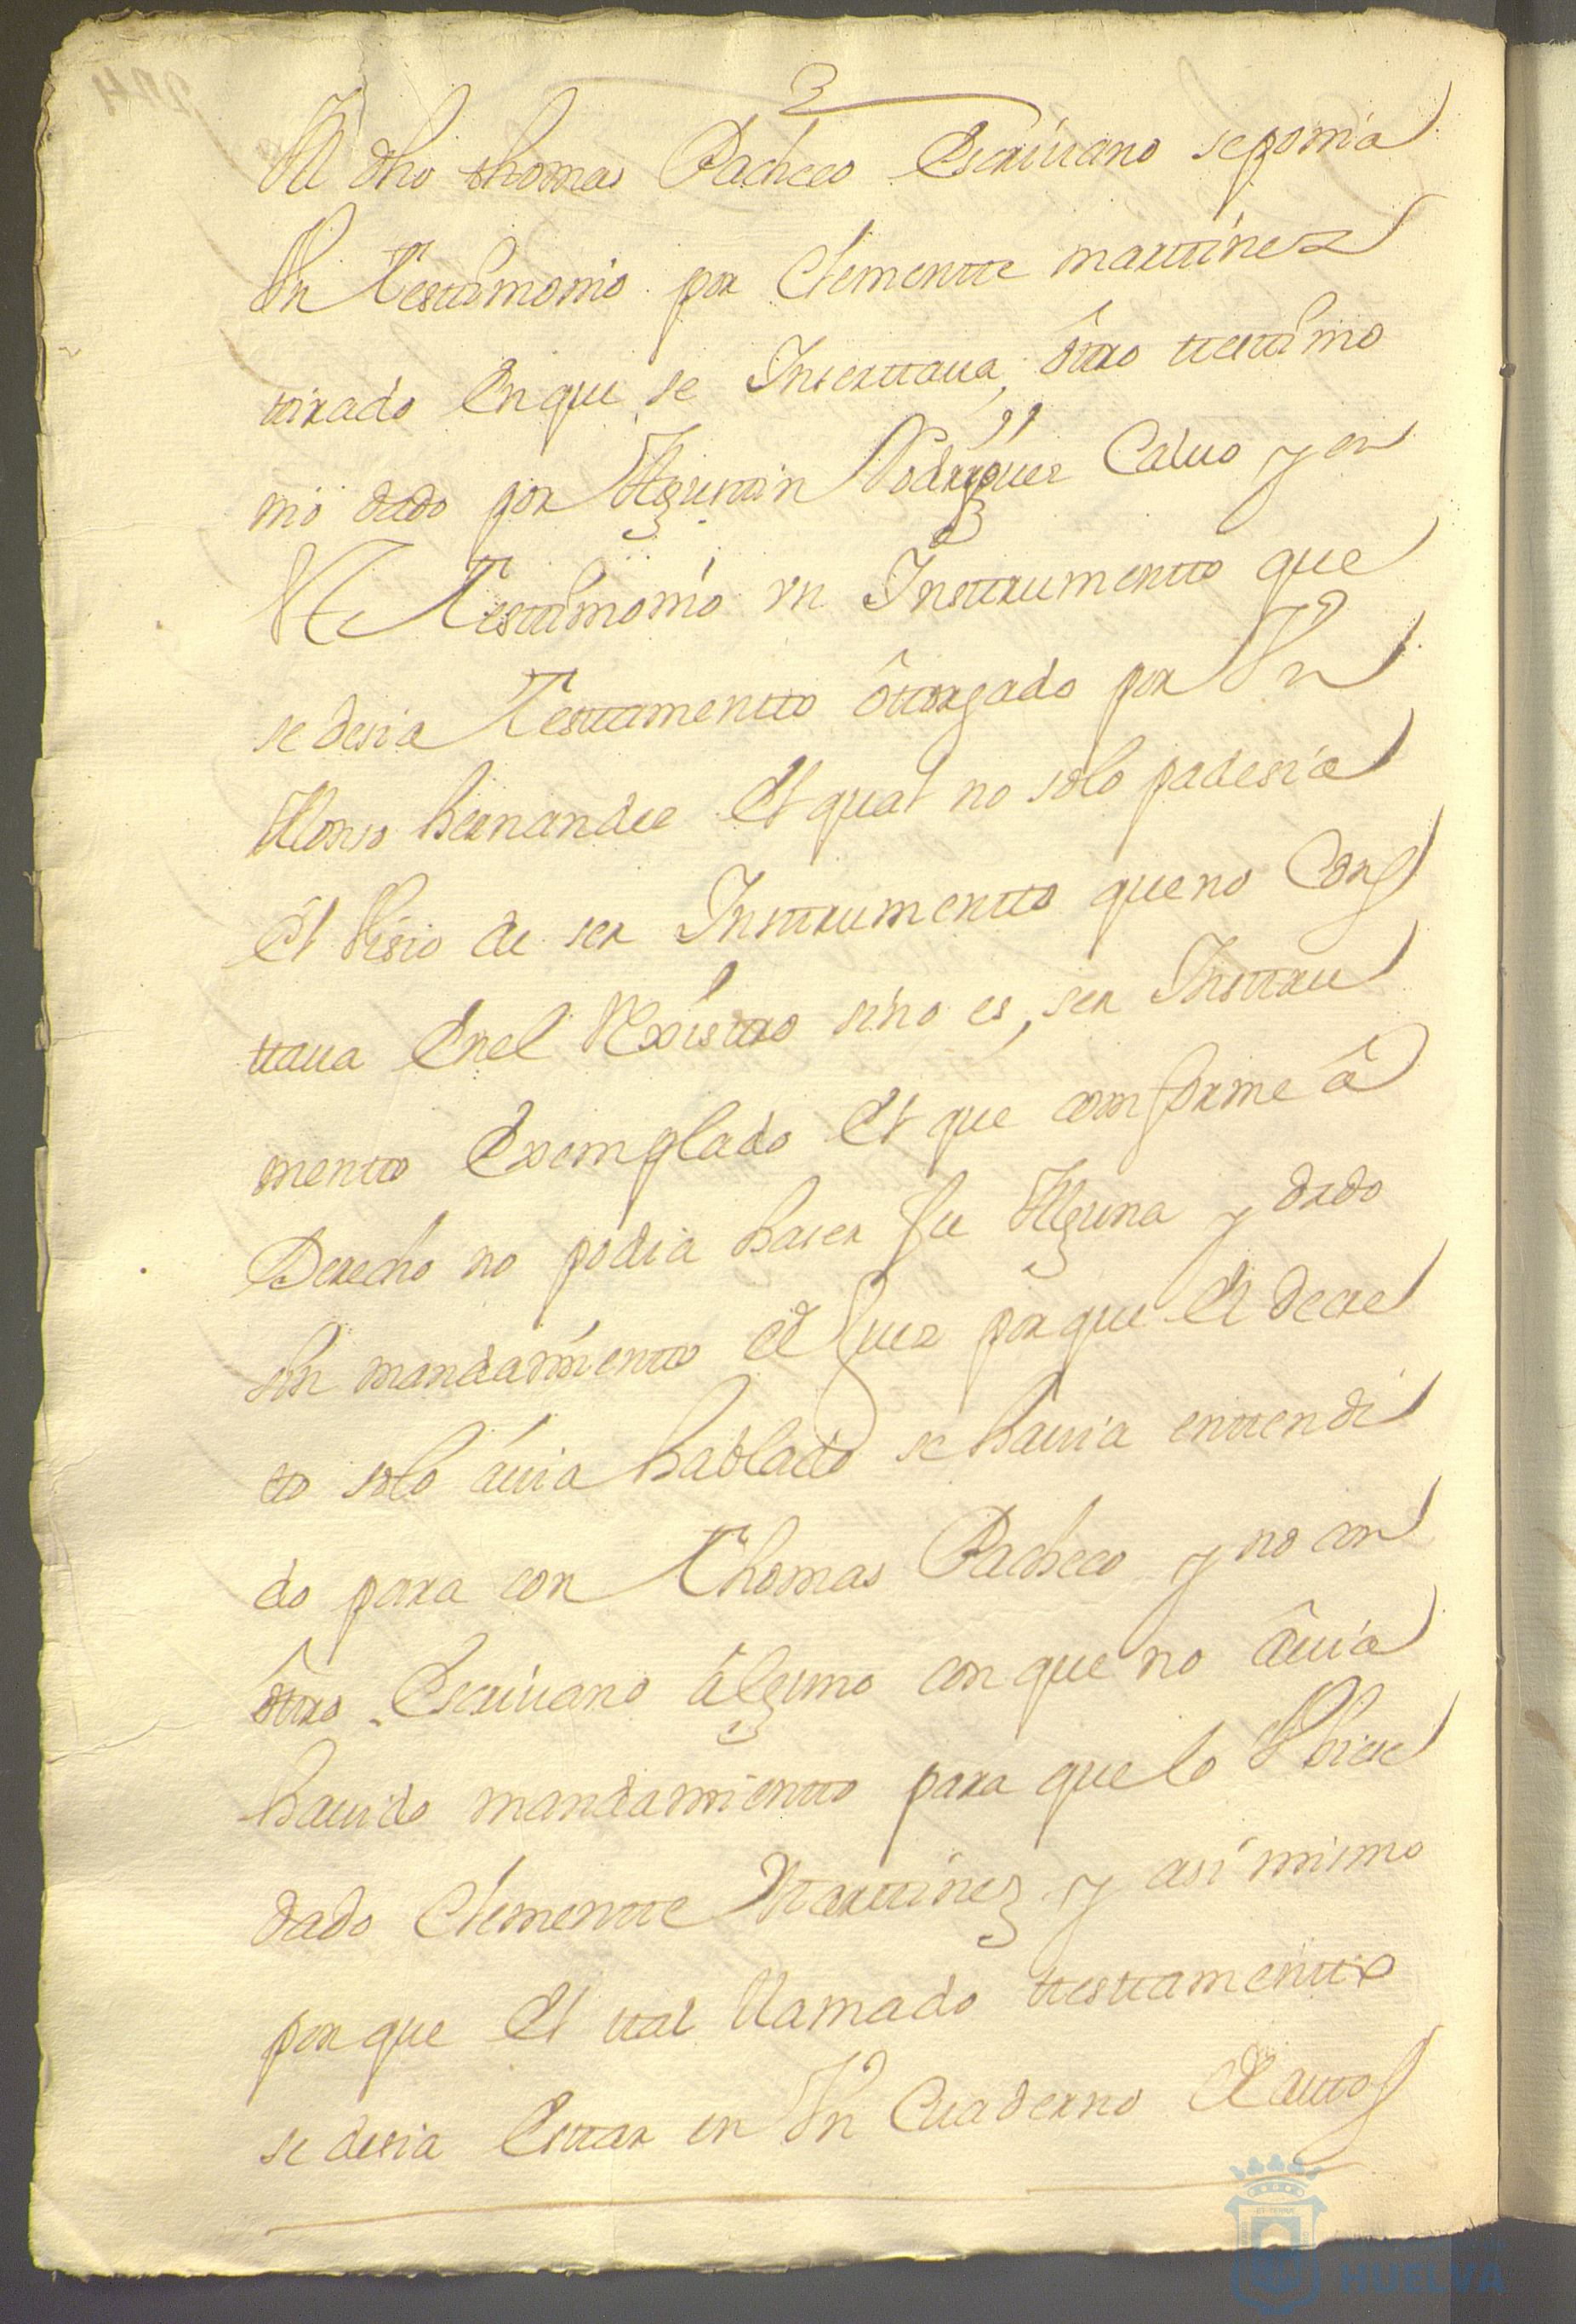 2
Al dho thomas Pacheco Escriuano seponia
Vn Testimonio por Clementte marttinez
tirado Enque se Inserttaua, ôtro ttestimo
nio dado por Agustin Rodriguez Caluo y en
Este Testimonio vn Insttrumentto que
se desia Testtamentto ôtorgado por Vn
Alonso hernandez El qual no solo padesia
El Visio de ser Insttrumentto que no Cons
ttaua Enel Rexisttro sino es, ser Insttru
mentto Exemplado El que conforme â
Derecho no podia haser fee Alguna y dado
sin mandamientto del Juez porque El decre
to solo âuia hablado se hauia enttendi
do para con Thomas Pacheco y no con
ôttro Escriuano âlguno con que no âuia
hauido mandamientto para que lo Vbiese
dado Clementte Marttinez y asi mismo
por que El ttal llamado ttesttamentto
se desia Esttar en Vn Cuaderno de auttos
HUELVA